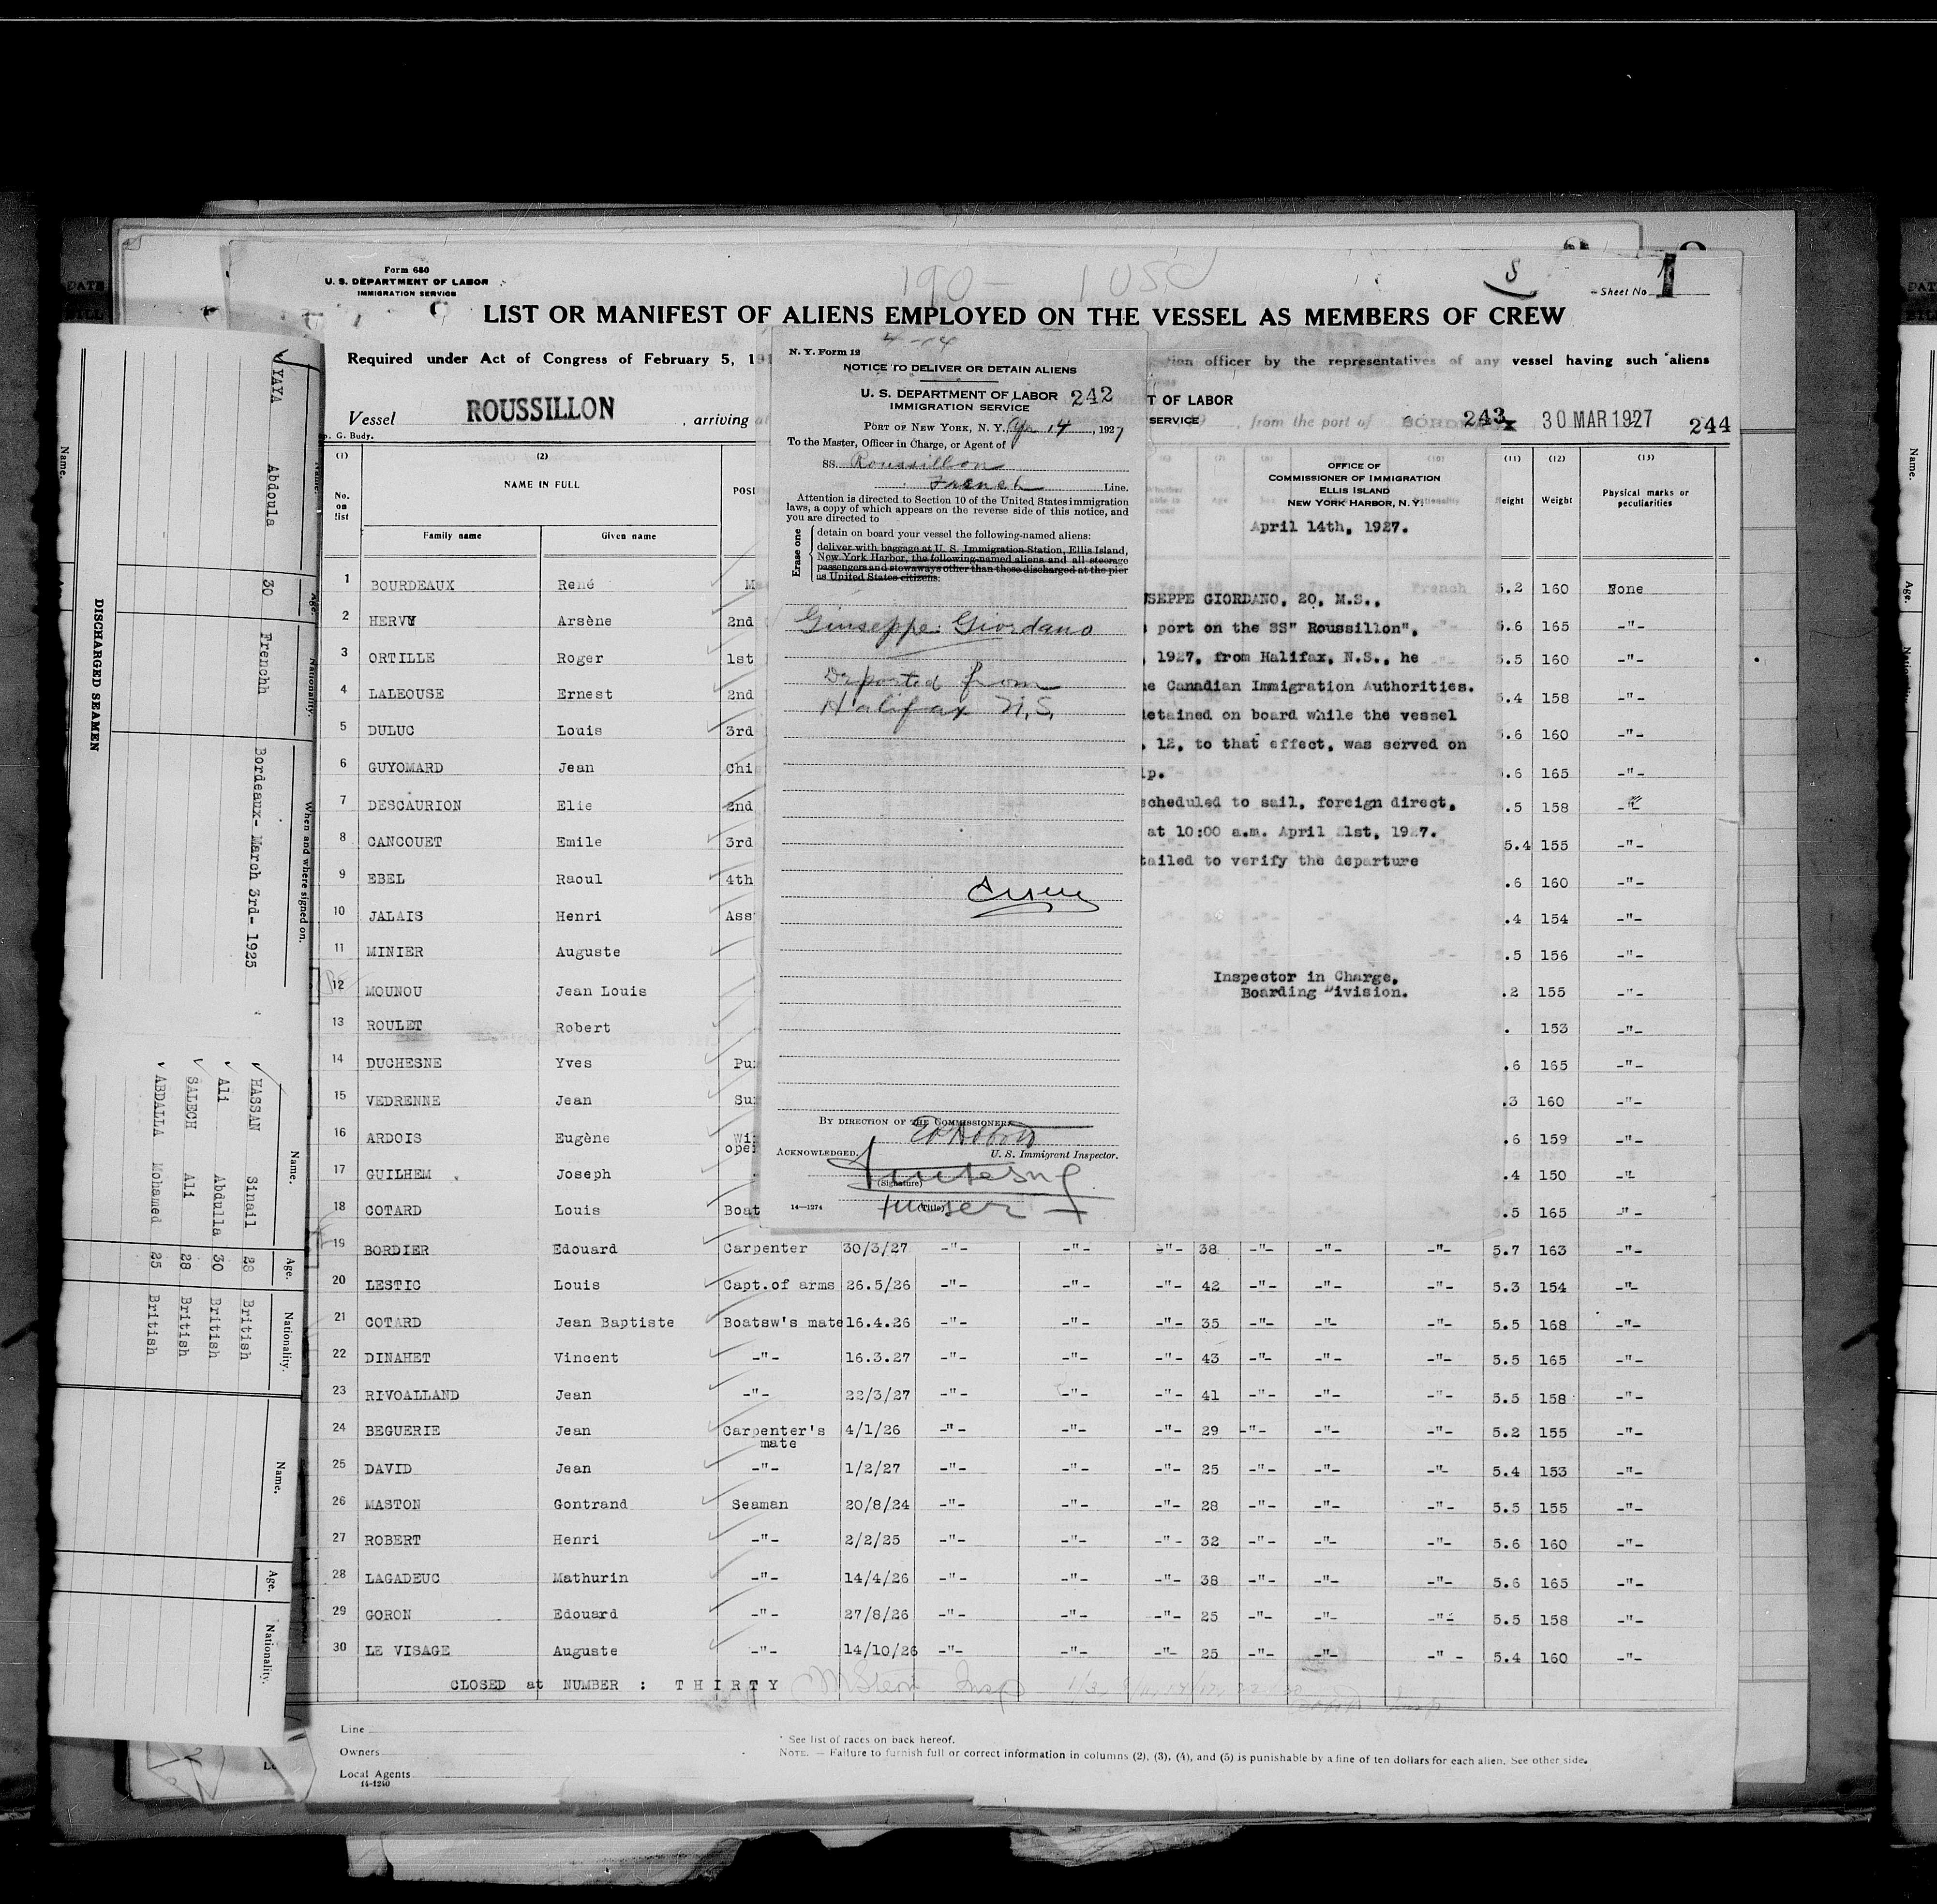 Form 680
U. S. DEPARTMENT OF LABOR
IMMIGRATION SERVICE
190- 1 USC
S
Sheet No 1
LIST OR MANIFEST OF ALIENS EMPLOYED ON THE VESSEL AS MEMBERS OF CREW
Required under Act of Congress of February 5, 191
tion officer by the representatives of any vessel having such aliens
Vessel ROUSSILLON, arriving
from the port of BORDEAUX 30 MAR 1927
244
p. G. Budy.
(1) (2) (11) (12) (13)
No. on list NAME IN FULL Height Weight Physical marks or peculiarities
Family name Given name
1 BOURDEAUX René 5.2 160 None
2 HERVY Arsène 2nd 5.6 165 -"-
3 ORTILLE Roger 1st 5.5 160 -"-
4 LALEOUSE Ernest 2nd 5.4 158 -"-
5 DULUC Louis 3rd .6 160 -"-
6 GUYOMARD Jean Chi .6 165 -"-
7 DESCAURION Elie 2nd .5 158 -"-
8 CANCOUET Emile 3rd 5.4 155 -"-
9 EBEL Raoul 4th .6 160 -"-
10 JALAIS Henri Ass .4 154 -"-
11 MINIER Auguste .5 156 -"-
12 MOUNOU Jean Louis .2 155 -"-
13 ROULET Robert . 153 -"-
14 DUCHESNE Yves Pu .6 165 -"-
15 VEDRENNE Jean Su .3 160 -"-
16 ARDOIS Eugène Wi oper .6 159 -"-
17 GUILHEM Joseph .4 150 -"-
18 COTARD Louis Boat .5 165 -"-
19 BORDIER Edouard Carpenter 30/3/27 -"- -"- -"- 38 -"- -"- -"- 5.7 163 -"-
20 LESTIC Louis Capt.of arms 26.5/26 -"- -"- -"- 42 -"- -"- -"- 5.3 154 -"-
21 COTARD Jean Baptiste Boatsw's mate 16.4.26 -"- -"- -"- 35 -"- -"- -"- 5.5 168 -"-
22 DINAHET Vincent -"- 16.3.27 -"- -"- -"- 43 -"- -"- -"- 5.5 165 -"-
23 RIVOALLAND Jean -"- 22/3/27 -"- -"- -"- 41 -"- -"- -"- 5.5 158 -"-
24 BEGUERIE Jean Carpenter's mate 4/1/26 -"- -"- -"- 29 -"- -"- -"- 5.2 155 -"-
25 DAVID Jean -"- 1/2/27 -"- -"- -"- 25 -"- -"- -"- 5.4 153 -"-
26 MASTON Gontrand Seaman 20/8/24 -"- -"- -"- 28 -"- -"- -"- 5.5 155 -"-
27 ROBERT Henri -"- 2/2/25 -"- -"- -"- 32 -"- -"- -"- 5.6 160 -"-
28 LAGADEUC Mathurin -"- 14/4/26 -"- -"- -"- 38 -"- -"- -"- 5.6 165 -"-
29 GORON Edouard -"- 27/8/26 -"- -"- -"- 25 -"- -"- -"- 5.5 158 -"-
30 LE VISAGE Auguste -"- 14/10/26 -"- -"- -"- 25 -"- -"- -"- 5.4 160 -"-
CLOSED at NUMBER : THIRTY
Line
Owners
Local Agents
14-1240
* See list of races on back hereof.
NOTE. — Failure to furnish full or correct information in columns (2), (3), (4), and (5) is punishable by a fine of ten dollars for each alien. See other side.
4-14
N. Y. Form 12
NOTICE TO DELIVER OR DETAIN ALIENS
U. S. DEPARTMENT OF LABOR 242
IMMIGRATION SERVICE
PORT OF NEW YORK, N. Y., Apr 14, 1927
To the Master, Officer in Charge, or Agent of
SS. Roussillon
French Line.
Attention is directed to Section 10 of the United States immigration
laws, a copy of which appears on the reverse side of this notice, and
you are directed to
Erase one
detain on board your vessel the following-named aliens:
deliver with baggage at U. S. Immigration Station, Ellis Island,
New York Harbor, the following-named aliens and all steerage
passengers and stowaways other than those discharged at the pier
as United States citizens:
Giuseppe Giordano
Deported from
Halifax N.S.
BY DIRECTION OF THE COMMISSIONER:
U. S. Immigrant Inspector.
ACKNOWLEDGED.
(Signature)
(Title)
14—1274
T OF LABOR
SERVICE
243
OFFICE OF
COMMISSIONER OF IMMIGRATION
ELLIS ISLAND
NEW YORK HARBOR, N. Y.
April 14th, 1927.
SEPPE GIORDANO, 20, M.S.,
port on the SS" Roussillon",
1927, from Halifax, N.S., he
e Canadian Immigration Authorities.
etained on board while the vessel
. 12, to that effect, was served on
ip.
scheduled to sail, foreign direct,
at 10:00 a.m. April 21st, 1927.
tailed to verify the departure
Inspector in Charge,
Boarding Division.
DISCHARGED SEAMEN
Name. Age. Nationality. When and where signed on.
YAYA Abdoula 30 Frenchh Bordeaux- March 3rd- 1925
Name. Age. Nationality.
HASSAN Sinail 28 British
Ali Abdulla 30 British
SALECH Ali 28 British
ABDALLA Mohamed 25 British
Name. Age. Nationality.